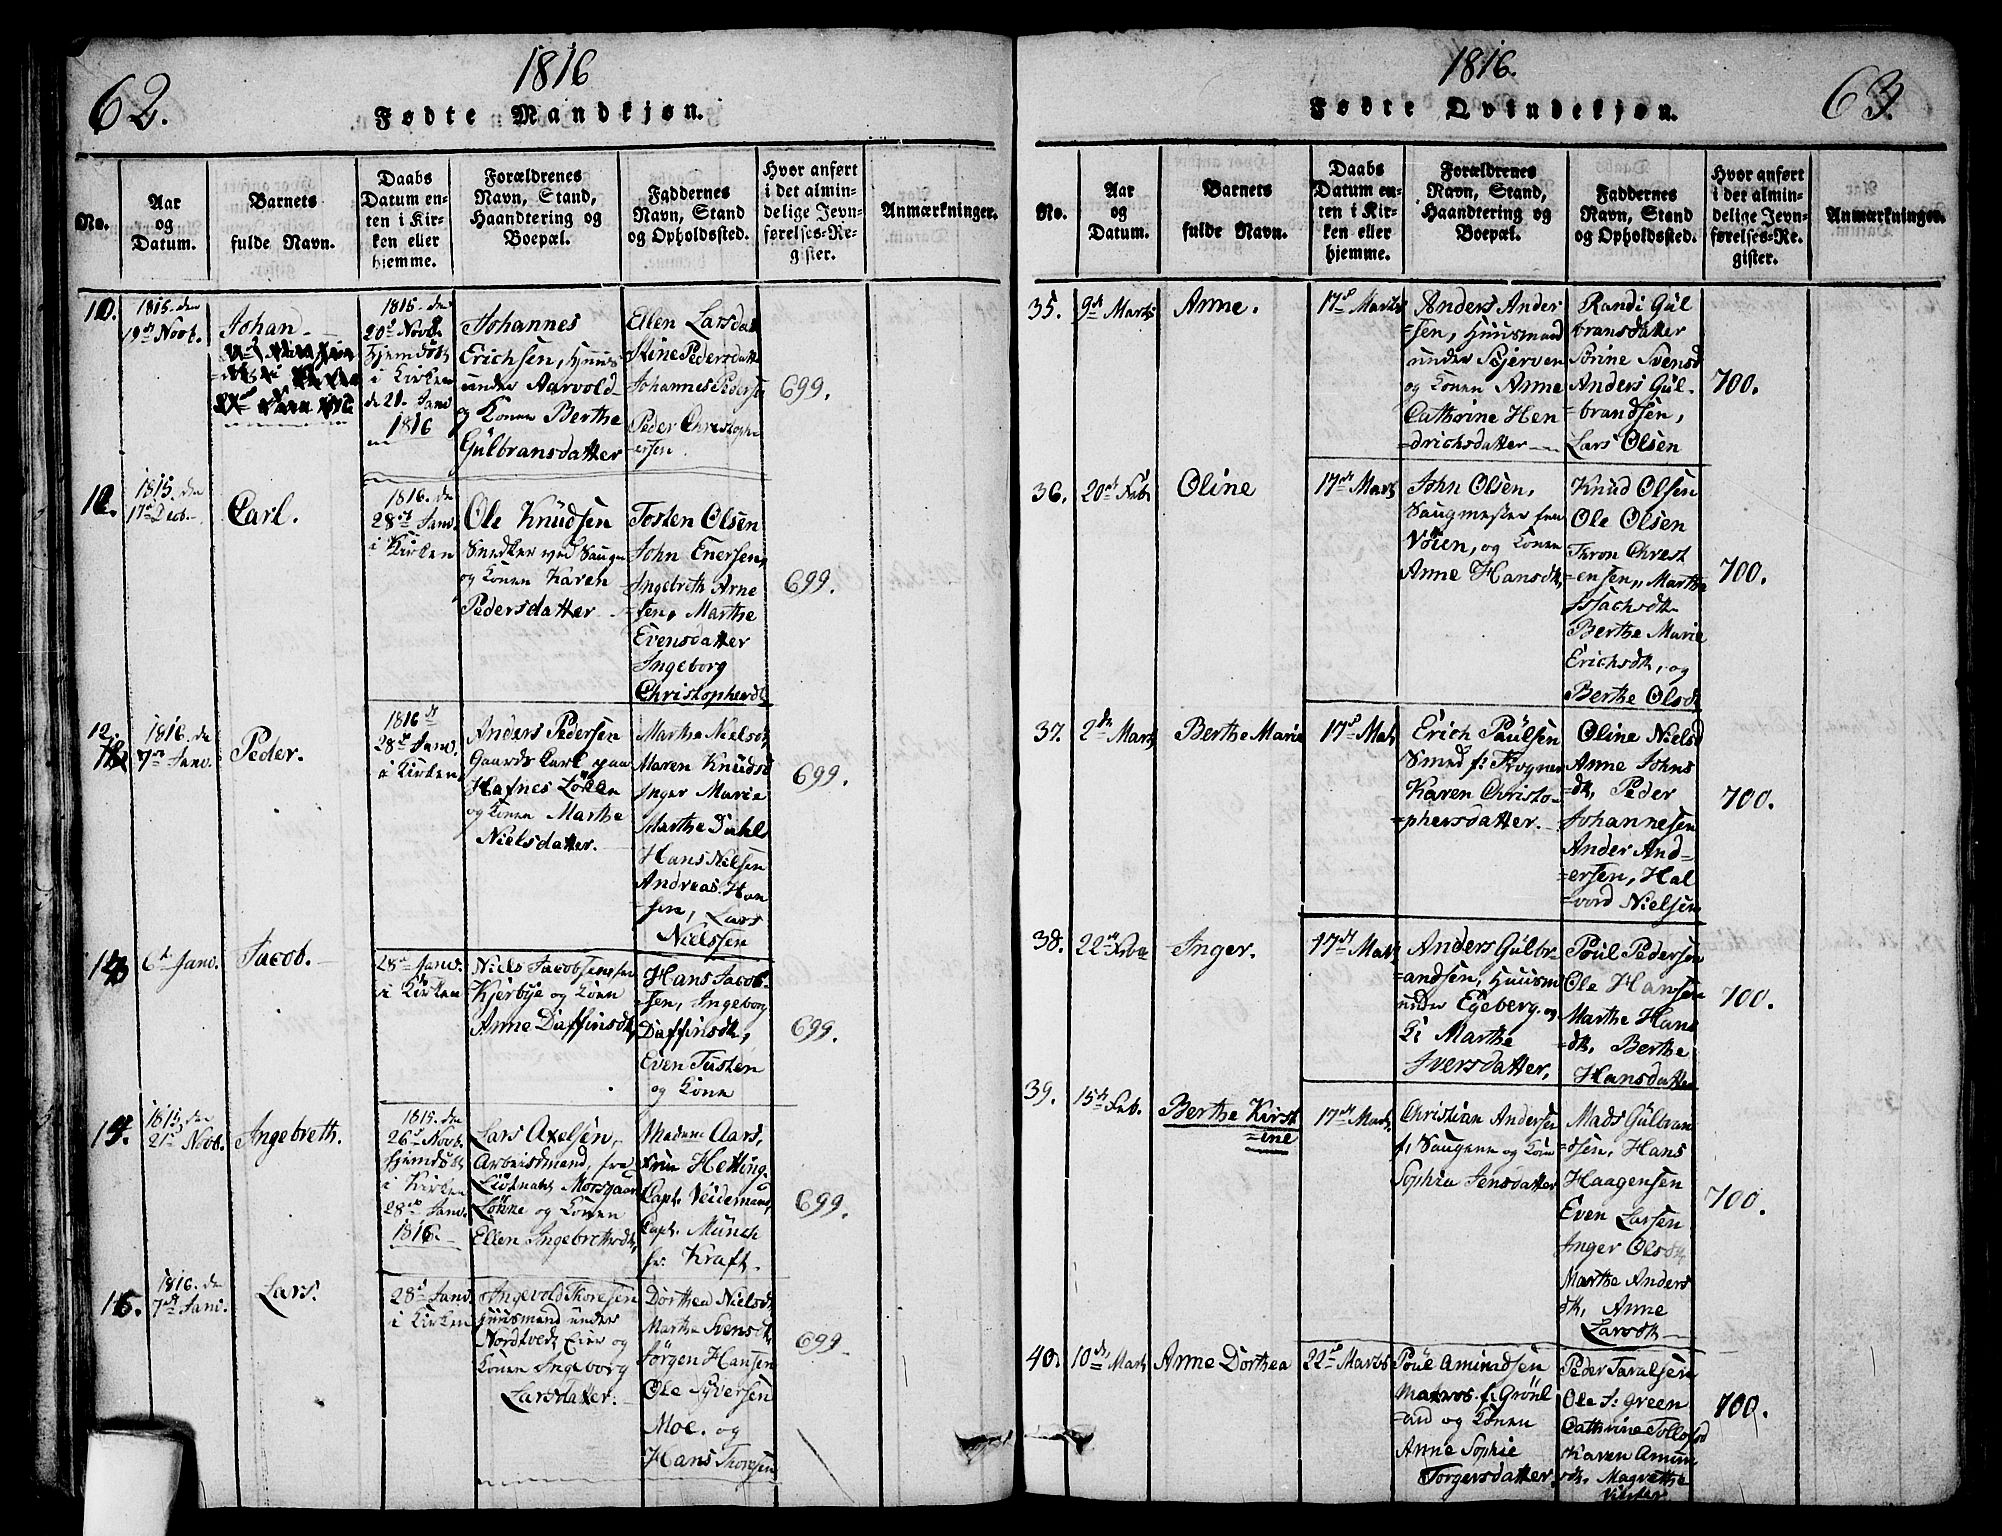 62.
1816
Fødte Mandkjøn.
No.
Aar
og
Datum.
Barnets
fulde Navn.
Daabs
Datum en-
ten i Kir-
ken eller
hjemme.
Forældrenes
Navn, Stand,
Haandtering og
Boepæl.
Faddernes
Navn, Stand
og Opholdssted.
Hvor anført
i det almin-
delige Jevn-
førelses-Re-
gister.
Anmærkninger.
10.
1815. den
19de Novb.
Johan
1815. den
20de Novb.
hjemdøbt
i Kirken
d. 21. Janv
1816
Johannes
Erichsen, Huus
under Aarvold
og Konen Berthe
Gulbransdatter
Ellen Larsdat
Stine Pedersdatt
Johannes Pedersen
Peder Christoph
ersen.
699.
1815. den
17de Decb.
Carl.
1816. den
28de Janv.
i Kirken
Ole Knudsen
Snedker ved Saugen
og Konen Karen
Pedersdatter
Tosten Olsen
John Enersen,
Ingebreth Arne
=sen, Marthe
Evensdatter
Ingeborg
Christophersdt
699.
12.
1816. den
7de Janv.
Peder.
1816 d
28de Janv.
i Kirken
Anders Pedersen
Gaards Carl paa
Hafnes Løkken
og Konen Marthe
Nielsdatter.
Marthe Nielsdt
Maren Knudsd
Inger Marie
Marthe Dahl
Hans Nielsen
Andreas Han
=sen, Lars
Nielssen
699.
6te Janv.
Jacob.
28de Janv.
i Kirken
Niels Jacobsen
Kjerbye og Konen
Anne Daffinsdt,
Hans Jacob-
sen, Ingeborg
Daffinsdt,
Even Tusten
og Konen
699.
14.
1815 den
21de Novb.
Ingebreth.
1815. den
26de Novb.
hjemdøbt
i Kirken
28de Janv.
1816.
Lars Axelsen,
Arbeidsmand,
Løitnant Morsgaar
Løkke og Konen
Ellen Ingebrethsdt,
Madame Aars,
Frue Hetting
Capt. Veidemann,
Capt. Münch
hr. Kraft.
699.
15.
1816. den
7de Janv.
Lars.
28de Janv.
i Kirken
Ingevold Thoresen
Huusmand under
Nordtvedt Eier og
Konen Ingeborg
Larsdatter.
Dorthea Nielsdt,
Marthe Svensdt
Jørgen Hansen
Ole Syversen
Moe. og
Hans Thoresen
699.
1816.
63.
Fødte Qvindekjøn.
No.
Aar
og
Datum.
Barnets
fulde Navn.
Daabs
Datum en-
ten i Kir-
ken eller
hjemme.
Forældrenes
Navn, Stand,
Haandtering og
Boepæl.
Faddernes
Navn, Stand
og Opholdssted.
Hvor anført
i det almin-
delige Jevn-
førelses-Re-
gister.
Anmærkninger.
35.
9de Marts
Anne.
17de Marts
Anders Ander
=sen, Huusmand
under Skjerven
og Konen Anne
Cathrine Hen
=drichsdatter
Randi Gul
bransdatter
Sonine Svensd
Anders Gul-
=brandsen,
Lars Olsen
700.
36.
20de Feb.
Oline
17de Marts
John Olsen,
Saugmester fra
Vøien, og Konen
Anne Hansdt,
Knud Olsen
Ole Olsen
Thron Chrest
=ensen, Marthe
Issachsdt
Berthe Marie
Erichsdt, og
Berthe Olsdt
700.
37.
2den Marts
Berthe Marie
17de Marts
Erich Paulsen
Smed f: Frogner
Karen Christo-
=phersdatter.
Oline Nielsd
Anne Johns
=dt, Peder
Johannesen
Ander And=
=ersen, Hal
vord Nielsen
700.
38.
22de Feb.
Inger.
17de Marts
Anders Gulbr-
=andsen, Huusm
under Egeberg og
K: Marthe
Iversdatter.
Poul Pedersen
Ole Hansen
Marthe Hans
=dt, Berthe
Hansdatter
700.
39.
15de Feb.
Berthe Kirst
=ine
17de Marts
Christian Andersen
f: Saugene og Konen
Sophia Jensdatter
Mads Gulbran
=dsen, Hans
Haagensen
Even Larsen
Inger Olsdt
Marthe Anders
dt, Anne
Larsdt
700.
40.
10de Marts
Anne Dorthea
22de Marts
Poul Aminadsen
Matros f: Grønl
=and og Konen
Anne Sophie
Torgersdatter
Peder Taralsen
Ole J: green
Cathrine Tollefsd
Karen Amun
=sdt, Magrethe
700.